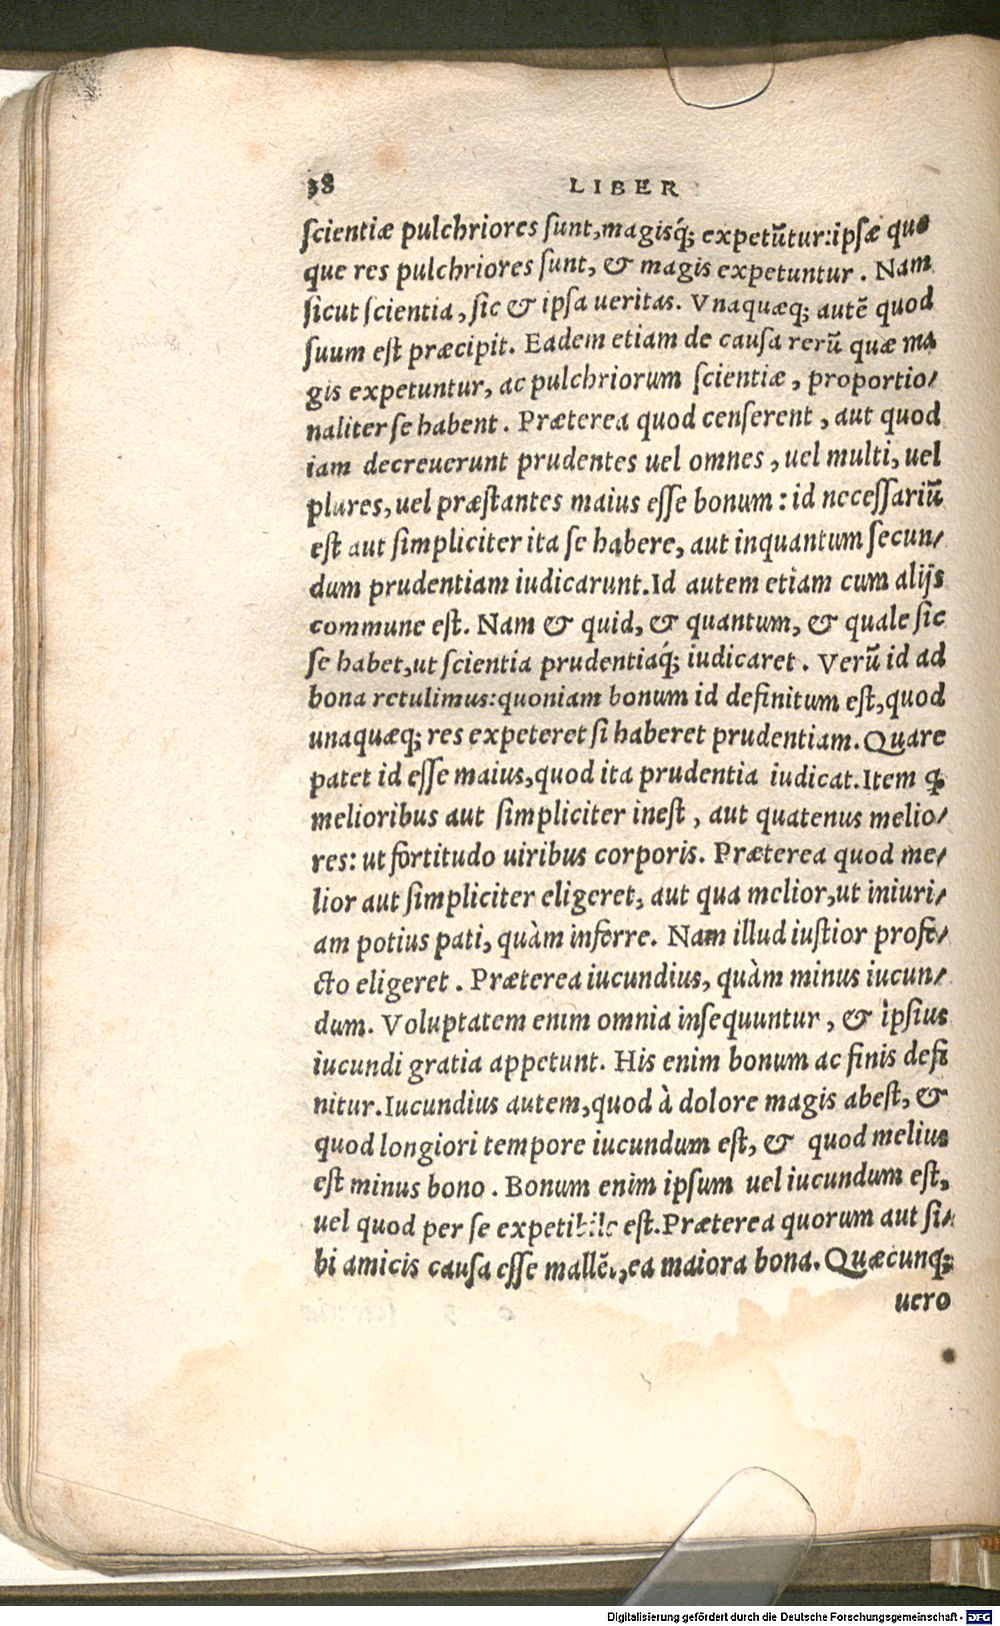 38 LIBER
scientiæ pulchriores sunt, magisq́; expetũtur: ipsæ quo
que res pulchriores sunt, & magis expetuntur. Nam
sicut scientia, sic & ipsa ueritas. Vnaquæq; autẽ quod
suum est præcipit. Eadem etiam de causa rerũ quæ ma
gis expetuntur, ac pulchriorum scientiæ, proportio/
naliter se habent. Præterea quod censerent, aut quod
iam decreuerunt prudentes uel omnes, uel multi, uel
plures, uel præstantes maius esse bonum: id necessariũ
est aut simpliciter ita se habere, aut inquantum secun/
dum prudentiam iudicarunt. Id autem etiam cum alijs
commune est. Nam & quid, & quantum, & quale sic
se habet, ut scientia prudentiaq́; iudicaret. Verũ id ad
bona retulimus: quoniam bonum id definitum est, quod
unaquæq; res expeteret si haberet prudentiam. Quare
patet id esse maius, quod ita prudentia iudicat. Item ꝙ
melioribus aut simpliciter inest, aut quatenus melio/
res: ut fortitudo uiribus corporis. Præterea quod me/
lior aut simpliciter eligeret, aut qua melior, ut iniuri/
am potius pati, quàm inferre. Nam illud iustior profe/
cto eligeret. Præterea iucundius, quàm minus iucun/
dum. Voluptatem enim omnia insequuntur, & ipsius
iucundi gratia appetunt. His enim bonum ac finis defi
nitur. Iucundius autem, quod à dolore magis abest, &
quod longiori tempore iucundum est, & quod melius
est minus bono. Bonum enim ipsum uel iucundum est,
uel quod per se expetibile est. Præterea quorum aut si/
bi amicis causa esse mallẽt, ea maiora bona. Quæcunq;
uero
Digitalisierung gefördert durch die Deutsche Forschungsgemeinschaft - DFG